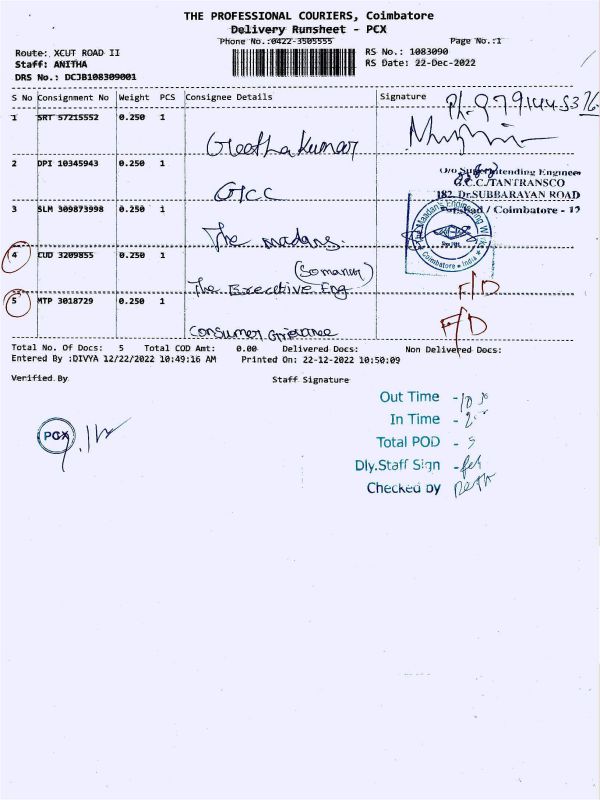 THE PROFESSIONAL COURIERS, Coimbatore
Delivery Runsheet - PCX
Phone No.:0422-3505555 Page No.:1
Route: XCUT ROAD II RS No.: 1083090
Staff: ANITHA RS Date: 22-Dec-2022
DRS No.: DCJB108309001
S No Consignment No Weight PCS Consignee Details Signature
1 SRT 57215552 0.250 1
Geetha kumar
2 DPI 10345943 0.250 1
GTCC
O/o Superintending Engineer
G.C.C./TANTRANSCO
182, Dr.SUBBARAYAN ROAD
Tatabad / Coimbatore - 12
3 SLM 309873998 0.250 1
The madans.
Coimbatore India
4 CUD 3209855 0.250 1
(Somanur)
The Executive Eng
F/D
5 MTP 3018729 0.250 1
Consumer Grievance
F/D
Total No. Of Docs: 5 Total COD Amt: 0.00 Delivered Docs: Non Delivered Docs:
Entered By :DIVYA 12/22/2022 10:49:16 AM Printed On: 22-12-2022 10:50:09
Verified By Staff Signature
Out Time -
In Time -
Total POD - 5
Dly.Staff Sign -
Checked by
PCX